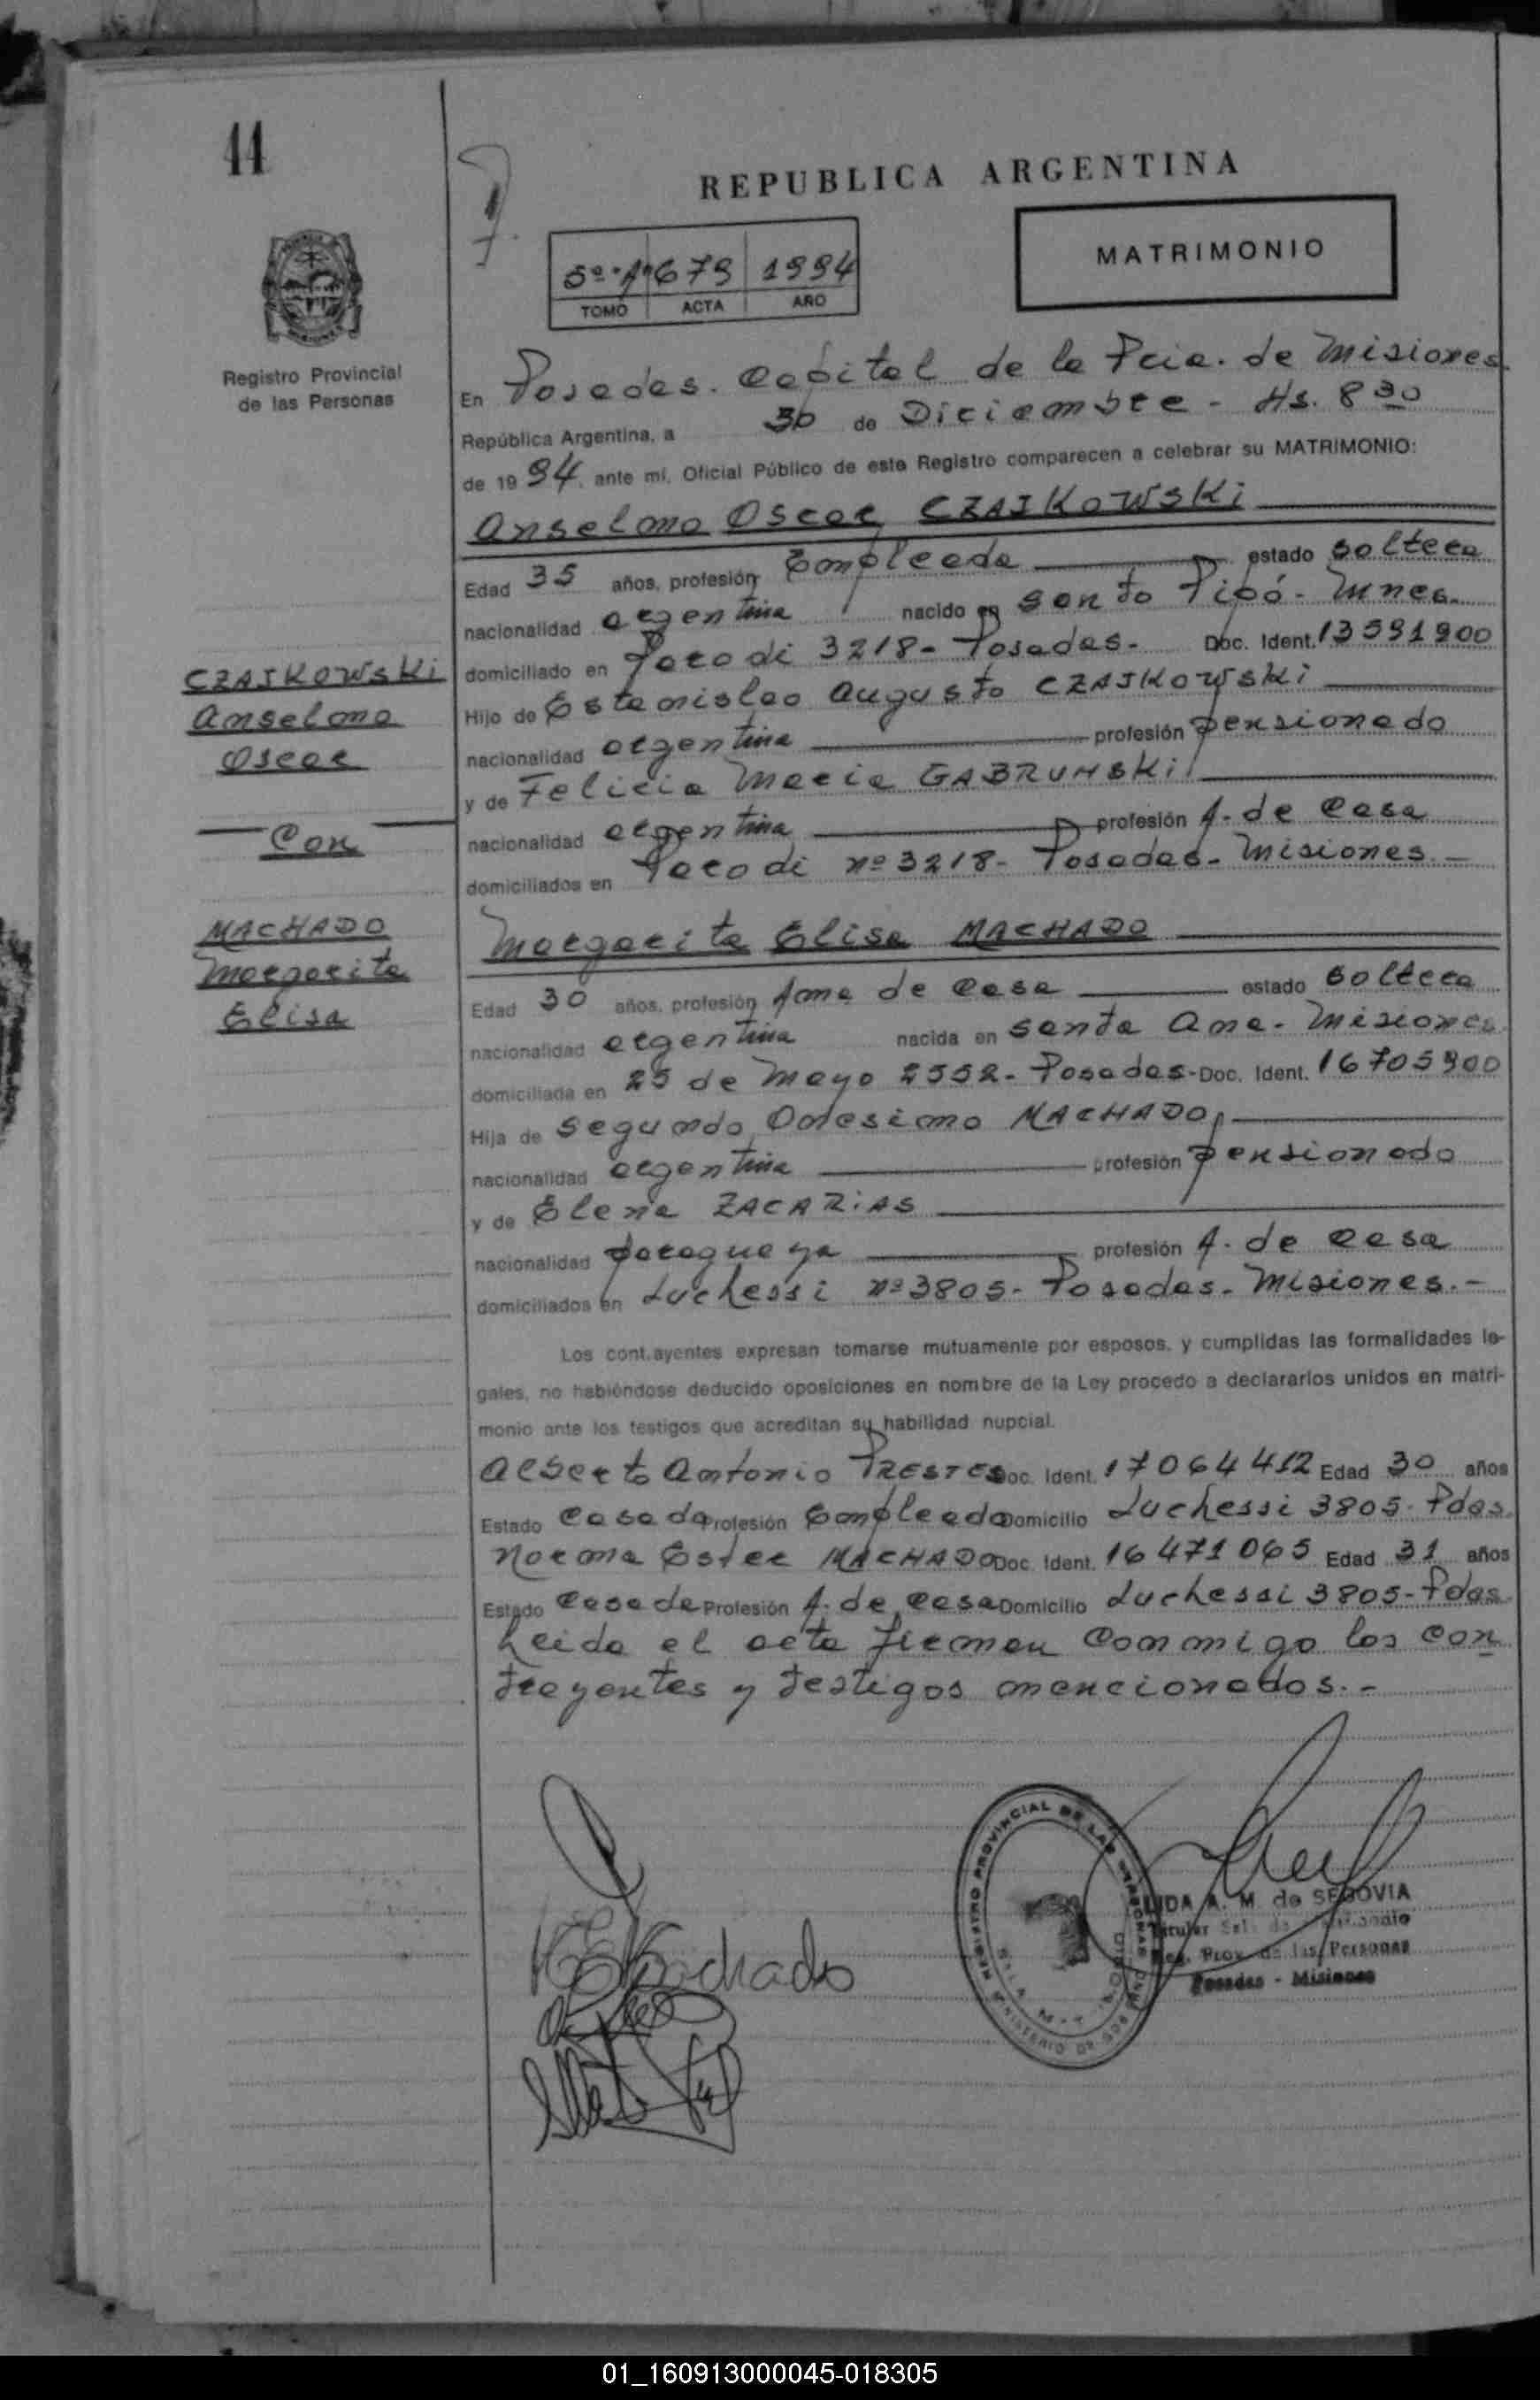 11
REPUBLICA ARGENTINA
MATRIMONIO
5º "A" 679 1994
TOMO ACTA AÑO
Registro Provincial
de las Personas
En Posadas. Capital de la Pcia. de Misiones
República Argentina, a 30 de Diciembre - Hs. 8 30
de 1994, ante mí, Oficial Público de este Registro comparecen a celebrar su MATRIMONIO:
Anselmo Oscar CZAJKOWSKi
Edad 35 años, profesión Empleado estado soltero
nacionalidad argentina nacido en Santo Pipó - Mnes.
domiciliado en Parodi 3218 - Posadas - Doc. Ident. 13591900
Hijo de Estanislao Augusto CZAJKOWSKi
nacionalidad argentina profesión pensionado
y de Felicia Maria GABRUNSKi
nacionalidad argentina profesión A. de Casa
domiciliados en Parodi nº 3218 - Posadas - Misiones. -
CZAJKOWSKi
Anselmo
Oscar
Con
MACHADO
Margarita
Elisa
Margarita Elisa MACHADO
Edad 30 años, profesión Ama de Casa estado soltera
nacionalidad argentina nacida en Santa Ana - Misiones
domiciliada en 25 de Mayo 2552 - Posadas - Doc. Ident. 16705900
Hija de Segundo Onesimo MACHADO
nacionalidad argentina profesión pensionado
y de Elena ZACARiAS
nacionalidad paraguaya profesión A. de Casa
domiciliados en Luchessi nº 3805 - Posadas - Misiones. -
Los cont.ayentes expresan tomarse mutuamente por esposos, y cumplidas las formalidades le-
gales, no habiéndose deducido oposiciones en nombre de la Ley procedo a declararlos unidos en matri-
monio ante los testigos que acreditan su habilidad nupcial.
Alberto Antonio PRESTES Doc. Ident. 17064412 Edad 30 años
Estado Casado Profesión Empleado Domicilio Luchessi 3805 - Pdas.
Norma Ester MACHADO Doc. Ident. 16471065 Edad 31 años
Estado Casada Profesión A. de Casa Domicilio Luchessi 3805 - Pdas.
Leida el acta firman conmigo los con
trayentes y testigos mencionados. -
Machado
REGISTRO PROVINCIAL DE LAS PERSONAS
MINISTERIO DE GOB
A. M. de SEGOVIA
Titular
Reg. Prov. de las Personas
Posadas - Misiones
01_160913000045-018305